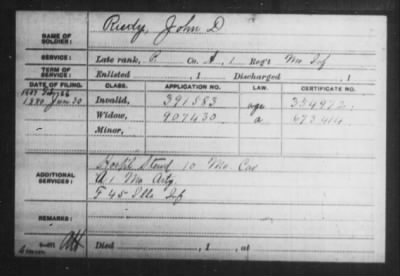 Riedy, John D
NAME OF SOLDIER:
SERVICE:
Late rank, P Co. A, 1 Reg't Mo Inf
TERM OF SERVICE:
Enlisted , 1 Discharged , 1
DATE OF FILING. CLASS. APPLICATION NO. LAW. CERTIFICATE NO.
1880 Jun 30 Invalid, 391883 age 354972
Widow, 907430 a 673414
Minor,
ADDITIONAL SERVICES:
Hospl Stewd 10 Mo Cav
A 1 Mo Arty
F 45 Ills Inf
REMARKS:
Died , 1 , at